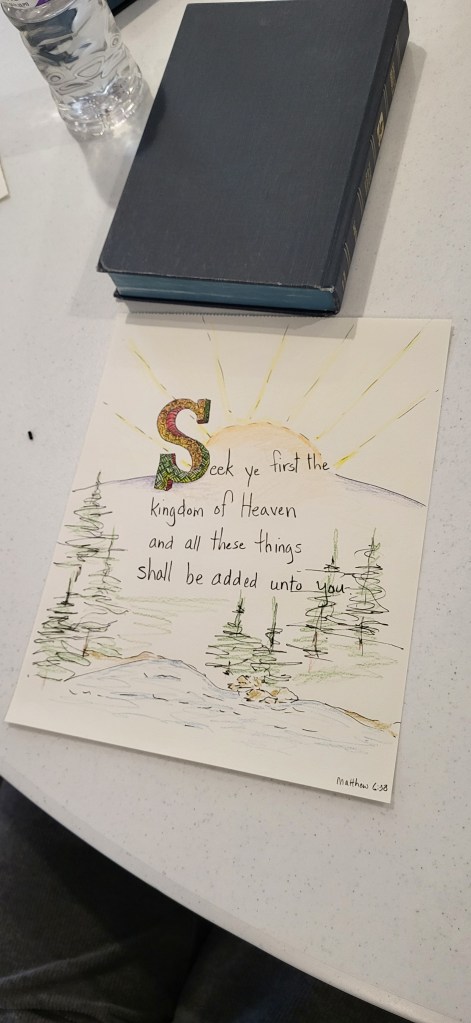 Seek ye first the
kingdom of Heaven
and all these things
shall be added unto you
Matthew 6:38